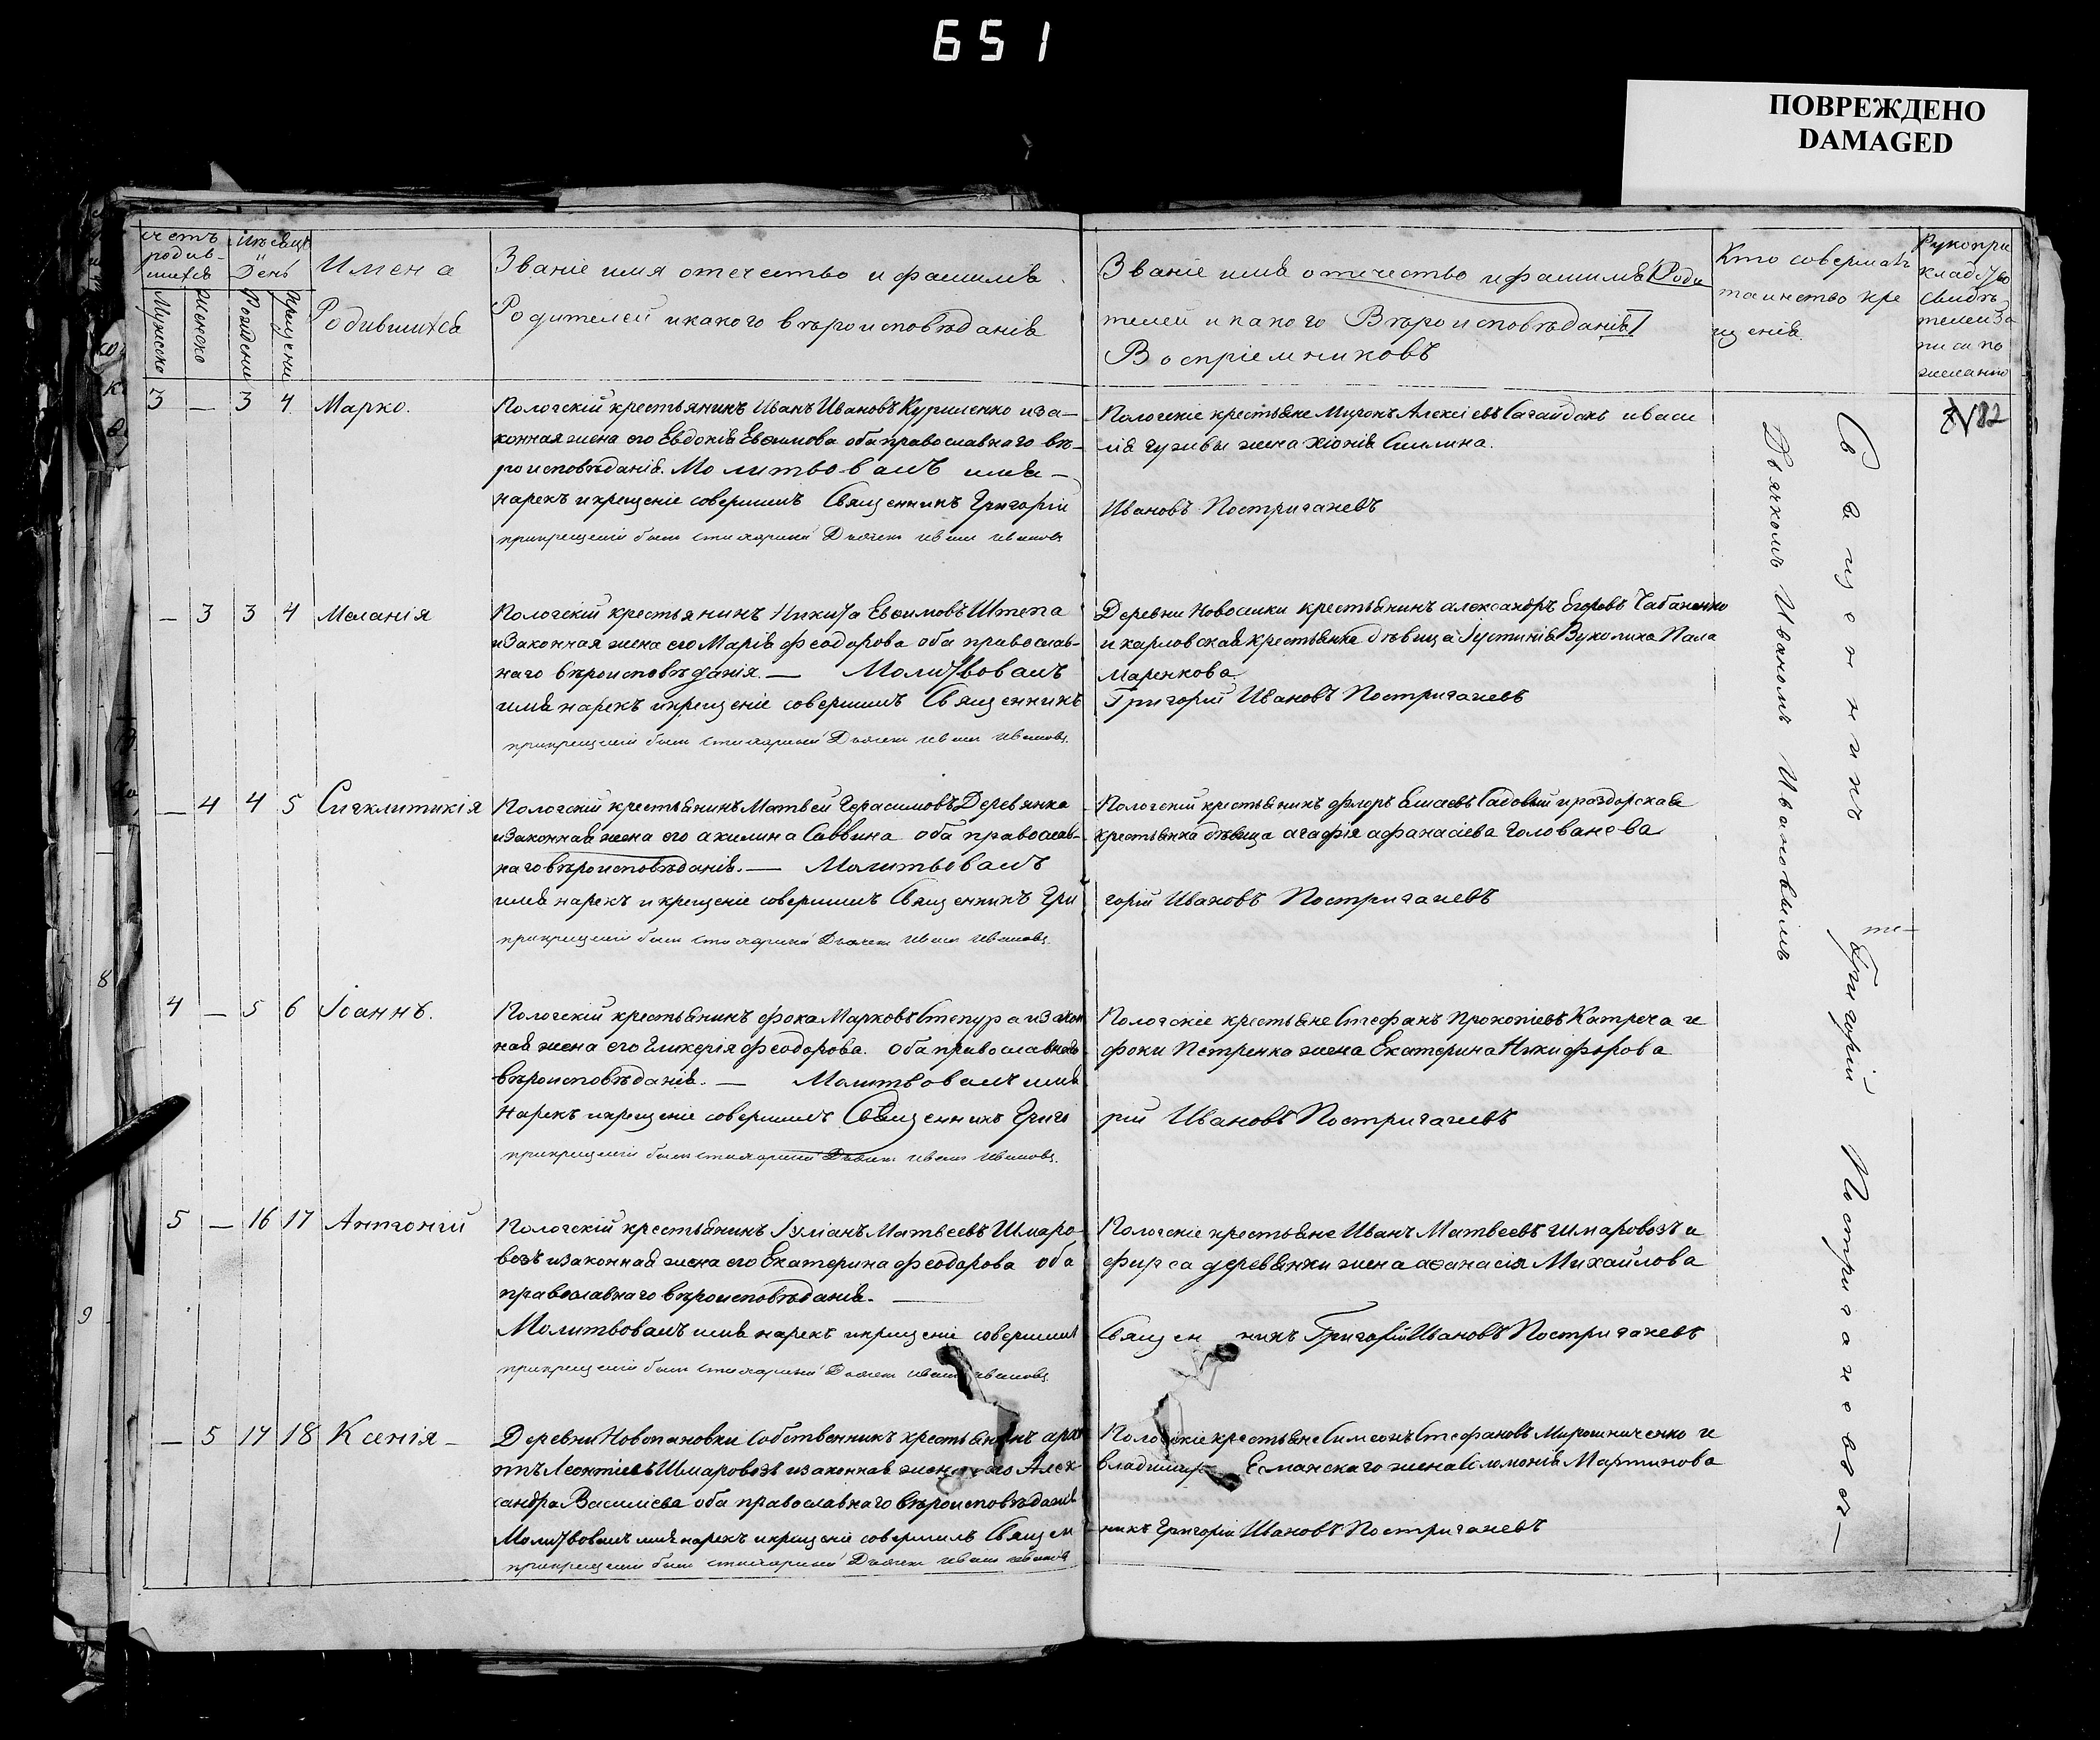 651
ПОВРЕЖДЕНО
DAMAGED
счетъ родив-шихся
Мѣсяцъ и День
Имена Родившихся
Званіе имя отечество и фамилія
Родителей и какого вѣроисповѣданія
Мужеска
Женска
Рожденія
Крещенія
Званіе имя отичество и фамилія [Роди
телей и какого Вѣроисповѣданія]
Воспріемниковъ
Кто совершалъ
таинство кре
щенія
Рукопри
кладство
свидѣ
телей за
писи по
желанію
3 — 3 4 Марко.
Пологскій крестьянинъ Иванъ Ивановъ Куриленко и за-
конная жена его Евдокія Евѳимова оба православнаго вѣ-
роисповѣданія. Молитвовалъ имя —
нарекъ и крещеніе совершилъ Священникъ Григорій
при крещеніи былъ стихарный Дьячекъ Иванъ Ивановъ
Пологскіе крестьяне Миронъ Алексіевъ Сагайдакъ и васи
лія гуживы жена Хіонія Силина.
Ивановъ Постригачевъ
— 3 3 4 Меланія
Пологскій крестьянинъ Никита Евѳимовъ Штепа
и Законная жена его Марія Феодорова оба православ-
наго вѣроисповѣданія. — Молитвовалъ
имя нарекъ и крещеніе совершилъ Священникъ
при крещеніи былъ стихарный Дьячекъ Иванъ Ивановъ.
Деревни Новоселки крестьянинъ александръ Егоровъ Чабаненко
и карловская крестьянка дѣвица Іустинія Вуколина Пала
маренкова
Григорій Ивановъ Постригачевъ
— 4 4 5 Сигклитикія
Пологскій крестьянинъ Матвей Герасимовъ Деревянка
и Законная жена его акилина Саввина оба православ-
наго вѣроисповѣданія. — Молитвовалъ
имя нарекъ и крещеніе совершилъ Священникъ Гри
при крещеніи былъ стихарный Дьячекъ Иванъ Ивановъ.
Пологскій крестьянинъ флоръ Елисеевъ Садовый и раздорская
крестьянка дѣвица агафія афанасіева голованева
горій Ивановъ Постригачевъ
4 — 5 6 Іоаннъ.
Пологскій крестьянинъ фока Марковъ Степура и закон
ная жена его Гликерія Феодорова. Оба православнаго
вѣроисповѣданія. — Молитвовалъ имя
нарекъ и крещеніе совершилъ Священникъ Григо
при крещеніи былъ стихарный Дьячекъ Иванъ Ивановъ.
Пологскіе крестьяне Стефанъ Прокопіевъ Катреча и
фоки Петренка жена Екатерина Никифорова
рій Ивановъ Постригачевъ
5 — 16 17 Антоній
Пологскій крестьянинъ Іуліанъ Матвеевъ Шмаро-
возъ и законная жена его Екатерина Феодорова оба
православнаго вѣроисповѣданія. —
Молитвовалъ имя нарекъ и крещеніе совершилъ
при крещеніи былъ стихарный Дьячекъ Иванъ Ивановъ.
Пологскіе крестьяне Иванъ Матвеевъ Шмаровозъ и
фирса деревянки жена аѳанасія Михайлова
Священникъ Григорій Ивановъ Постригачевъ
— 5 17 18 Ксенія —
Деревни Новопановки Собственникъ крестьянинъ архи
ппъ Леонтіевъ Шмаровозъ и законная жена его Алек-
сандра Василіева оба православнаго вѣроисповѣданія
Молитвовалъ имя нарекъ и крещеніе совершилъ Священ
при крещеніи былъ стихарный Дьячекъ Иванъ Ивановъ
Пологскіе крестьяне Симеонъ Стефановъ Мирошниченко и
владимира Есманскаго жена Соломонія Мартинова
никъ Григорій Ивановъ Постригачевъ
Священникъ Григорій Постригачевъ съ —
Дьячкомъ Иваномъ Ивановымъ
8
9